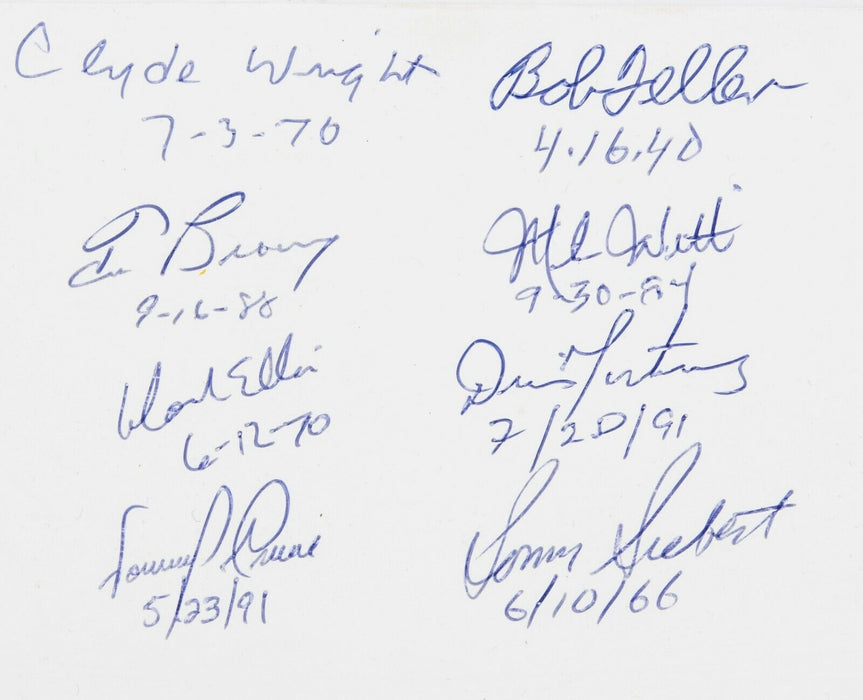 Clyde Wright
7-3-70
Bob Feller
4.16.40
Tom Browning
9-16-88
Mike Witt
9-30-84
Dock Ellis
6-12-70
Dennis Martinez
7/28/91
Tommy Greene
5/23/91
Sonny Siebert
6/10/66